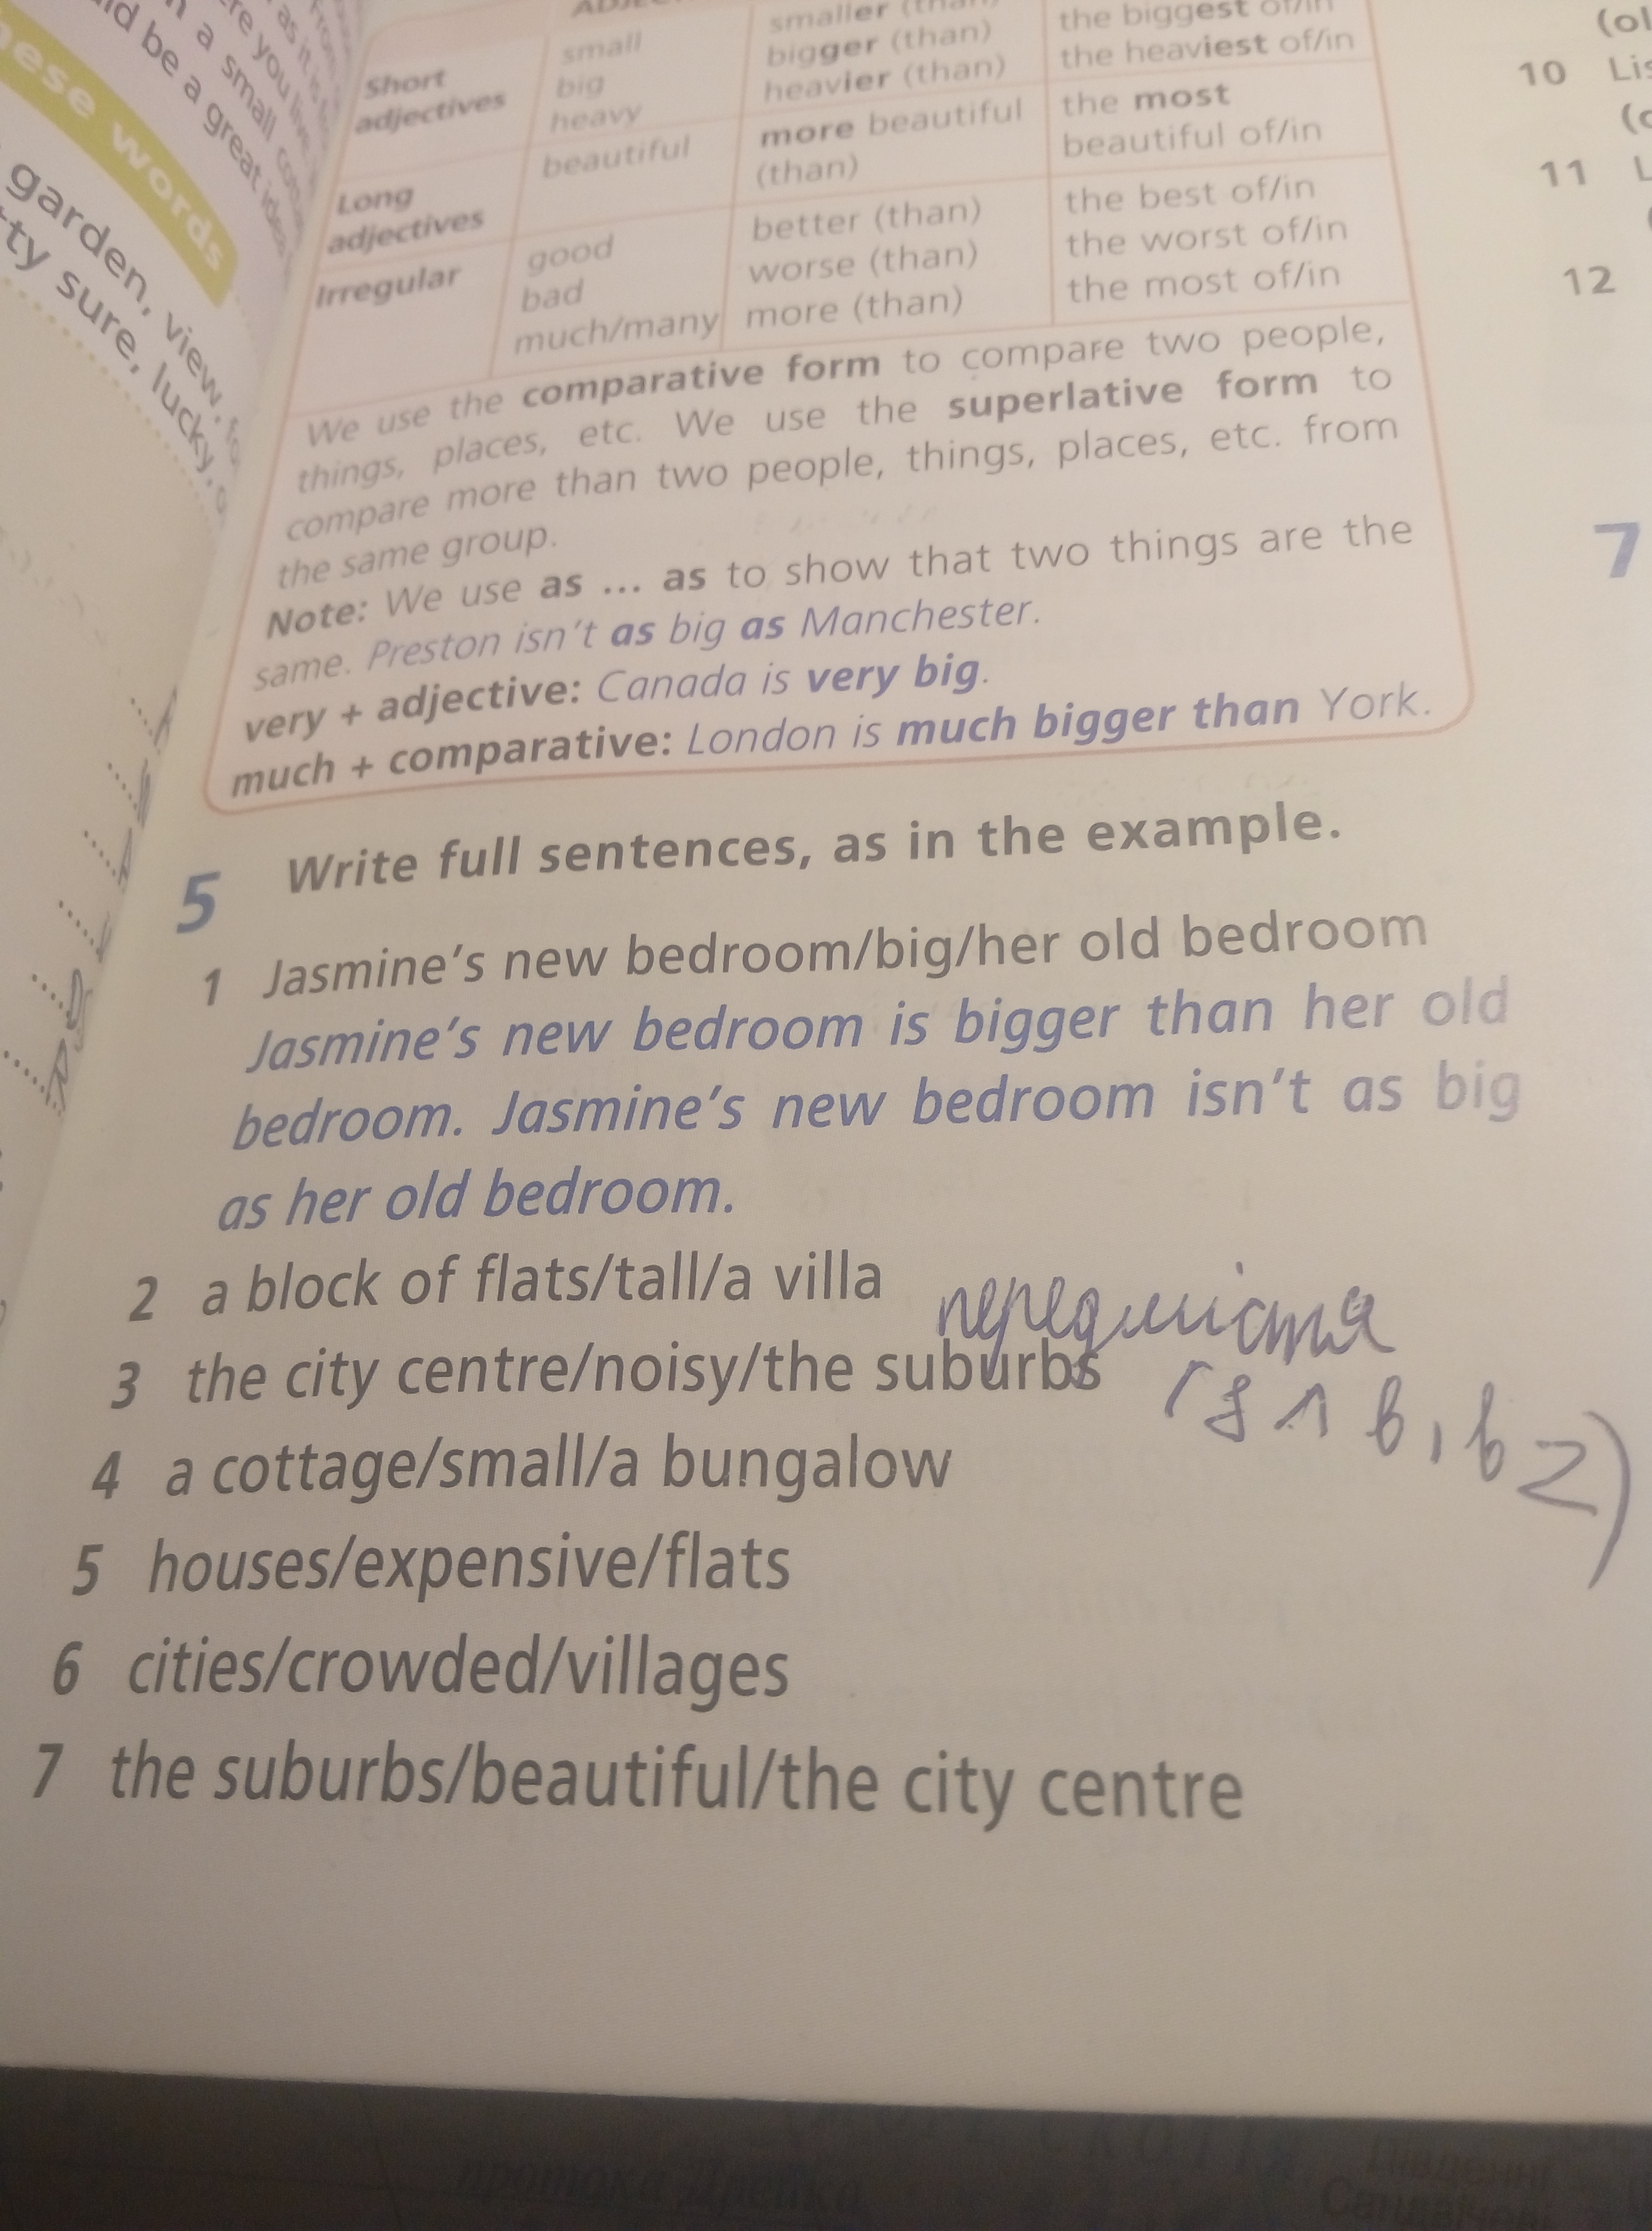 ese words
garden, view,
ty sure, lucky,
Short
adjectives
small
big
heavy
smaller
bigger (than)
heavier (than)
the biggest of/in
the heaviest of/in
Long
adjectives
beautiful
more beautiful
(than)
the most
beautiful of/in
Irregular
good
bad
much/many
better (than)
worse (than)
more (than)
the best of/in
the worst of/in
the most of/in
We use the comparative form to compare two people,
things, places, etc. We use the superlative form to
compare more than two people, things, places, etc. from
the same group.
Note: We use as ... as to show that two things are the
same. Preston isn't as big as Manchester.
very + adjective: Canada is very big.
much + comparative: London is much bigger than York.
5 Write full sentences, as in the example.
1 Jasmine's new bedroom/big/her old bedroom
Jasmine's new bedroom is bigger than her old
bedroom. Jasmine's new bedroom isn't as big
as her old bedroom.
2 a block of flats/tall/a villa
передмістя
3 the city centre/noisy/the suburbs
4 a cottage/small/a bungalow
5 houses/expensive/flats
6 cities/crowded/villages
7 the suburbs/beautiful/the city centre
10
11
12
7
протока Дрейка